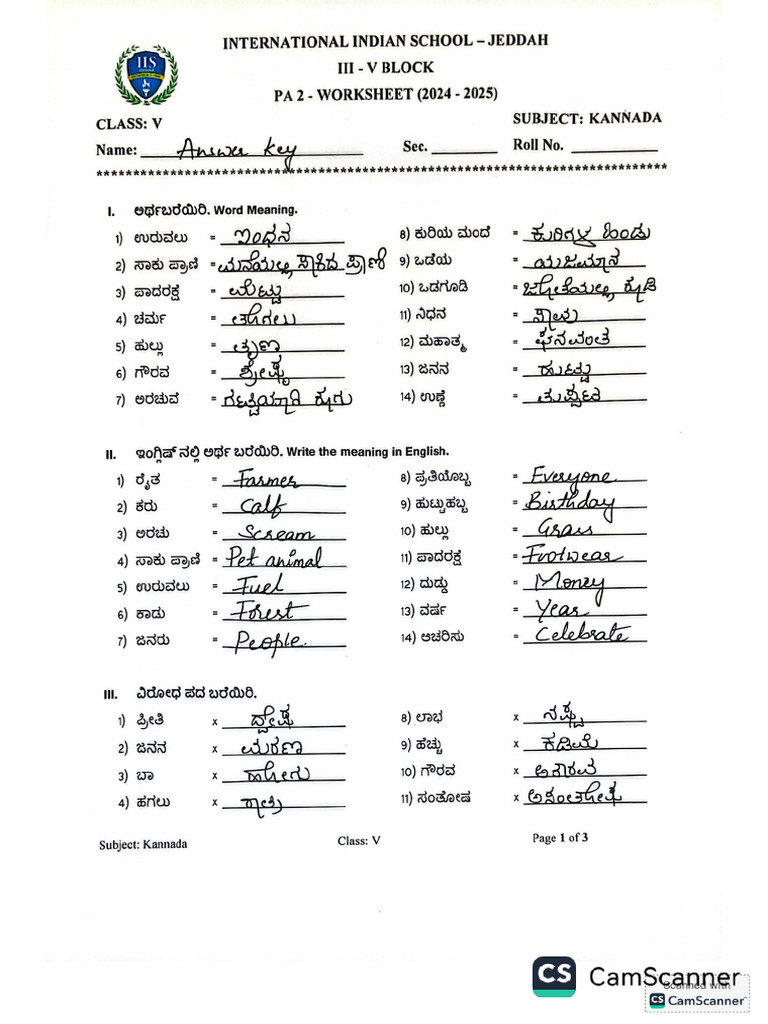 INTERNATIONAL INDIAN SCHOOL – JEDDAH
III - V BLOCK
PA 2 - WORKSHEET (2024 - 2025)
IIS
CLASS: V SUBJECT: KANNADA
Name: Answer key Sec. Roll No.
I. ಅರ್ಥಬರೆಯಿರಿ. Word Meaning.
1) ಉರುವಲು = ಇಂಧನ 8) ಕುರಿಯ ಮಂದೆ = ಕುರಿಗಳ ಹಿಂಡು
2) ಸಾಕು ಪ್ರಾಣಿ = ಮನೆಯಲ್ಲಿ ಸಾಕಿದ ಪ್ರಾಣಿ 9) ಒಡೆಯ = ಯಜಮಾನ
3) ಪಾದರಕ್ಷೆ = ಮೆಟ್ಟು 10) ಒಡಗೂಡಿ = ಜೊತೆಯಲ್ಲಿ ಕೂಡಿ
4) ಚರ್ಮ = ತೊಗಲು 11) ನಿಧನ = ಸಾವು
5) ಹುಲ್ಲು = ತೃಣ 12) ಮಹಾತ್ಮ = ಘನವಂತ
6) ಗೌರವ = ಶ್ರೇಷ್ಠ 13) ಜನನ = ಹುಟ್ಟು
7) ಅರಚುವ = ಗಟ್ಟಿಯಾಗಿ ಕೂಗು 14) ಉಣ್ಣೆ = ತುಪ್ಪಟ
II. ಇಂಗ್ಲಿಷ್ ನಲ್ಲಿ ಅರ್ಥ ಬರೆಯಿರಿ. Write the meaning in English.
1) ರೈತ = Farmer 8) ಪ್ರತಿಯೊಬ್ಬ = Everyone
2) ಕರು = Calf 9) ಹುಟ್ಟುಹಬ್ಬ = Birthday
3) ಅರಚು = Scream 10) ಹುಲ್ಲು = Grass
4) ಸಾಕು ಪ್ರಾಣಿ = Pet animal 11) ಪಾದರಕ್ಷೆ = Footwear
5) ಉರುವಲು = Fuel 12) ದುಡ್ಡು = Money
6) ಕಾಡು = Forest 13) ವರ್ಷ = Year
7) ಜನರು = People. 14) ಆಚರಿಸು = Celebrate
III. ವಿರೋಧ ಪದ ಬರೆಯಿರಿ.
1) ಪ್ರೀತಿ x ದ್ವೇಷ 8) ಲಾಭ x ನಷ್ಟ
2) ಜನನ x ಮರಣ 9) ಹೆಚ್ಚು x ಕಡಿಮೆ
3) ಬಾ x ಹೋಗು 10) ಗೌರವ x ಅಗೌರವ
4) ಹಗಲು x ರಾತ್ರಿ 11) ಸಂತೋಷ x ಅಸಂತೋಷ
Subject: Kannada Class: V Page 1 of 3
CS CamScanner
Scanned with
CS CamScanner